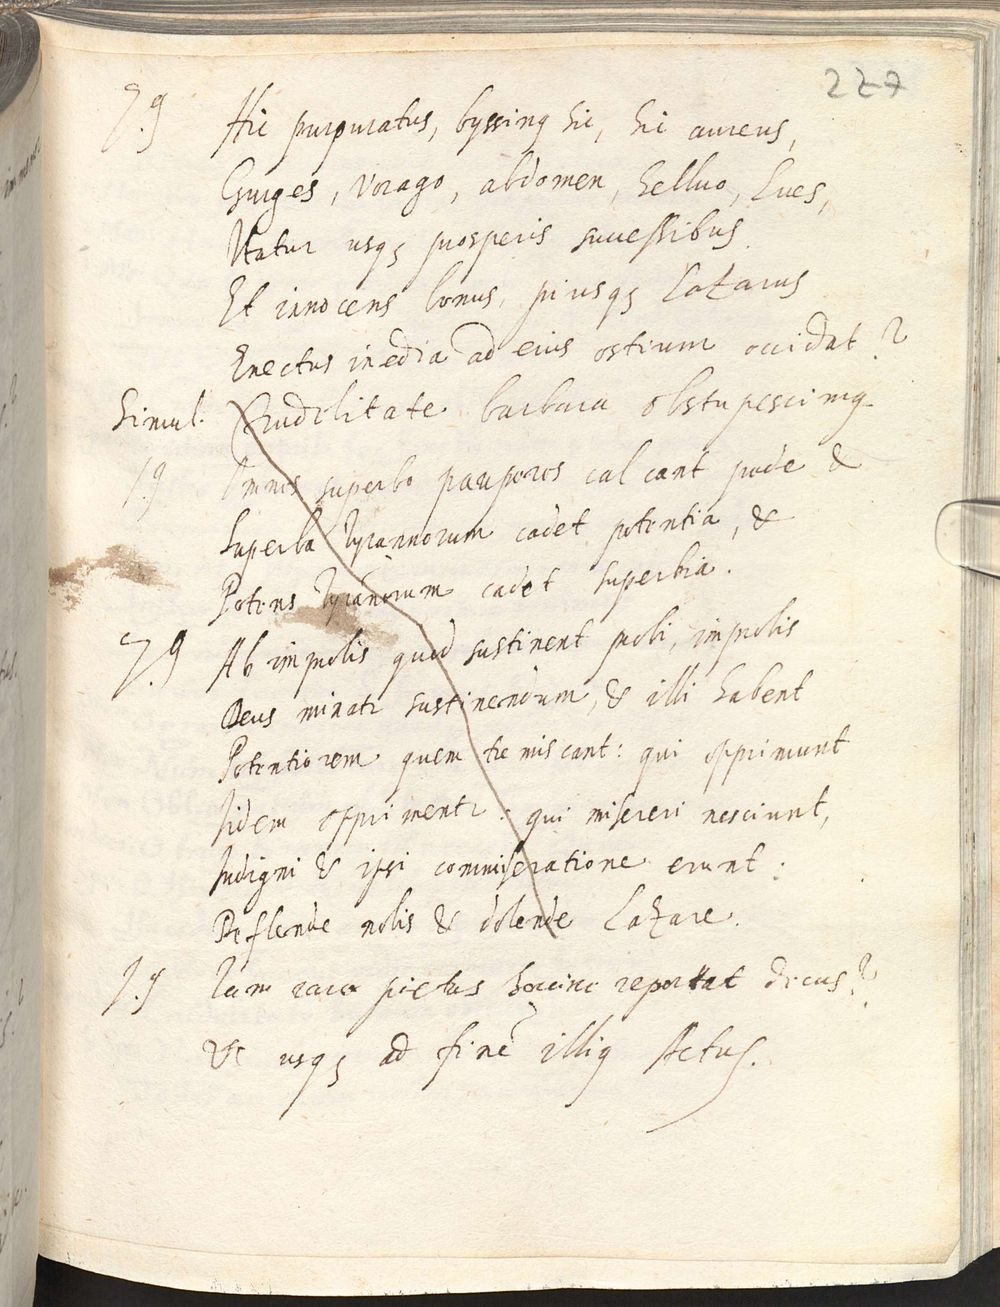 227
Hic purpuratus, byssinq hic, hic aureus,
Gurges, vorago, abdomen, helluo, lues,
Utatur usqꝫ prosperis successibus
Et innocens bonus, piusqꝫ Lazarus
Enectus inedia ad eius ostium occidat?
Simul. Crudelitate barbara obstupescimq
Omnes superbo pauperes calcant pede &
Superba tyrannorum cadet potentia, &
Potens tyrañorum cadet superbia.
Ab improbis quod sustinent probi, improbis
Deus minatr sustinendum, & illi habent
Potentiorem quem tremiscant: qui opprimunt
Iidem opprimentr: qui misereri nesciunt,
Indigni & ipsi commiseratione erunt:
Deflende nobis & dolende Lazare.
Tam rara pietas hoccine reportat decus?
Ut usqꝫ ad finē illiq Actus.